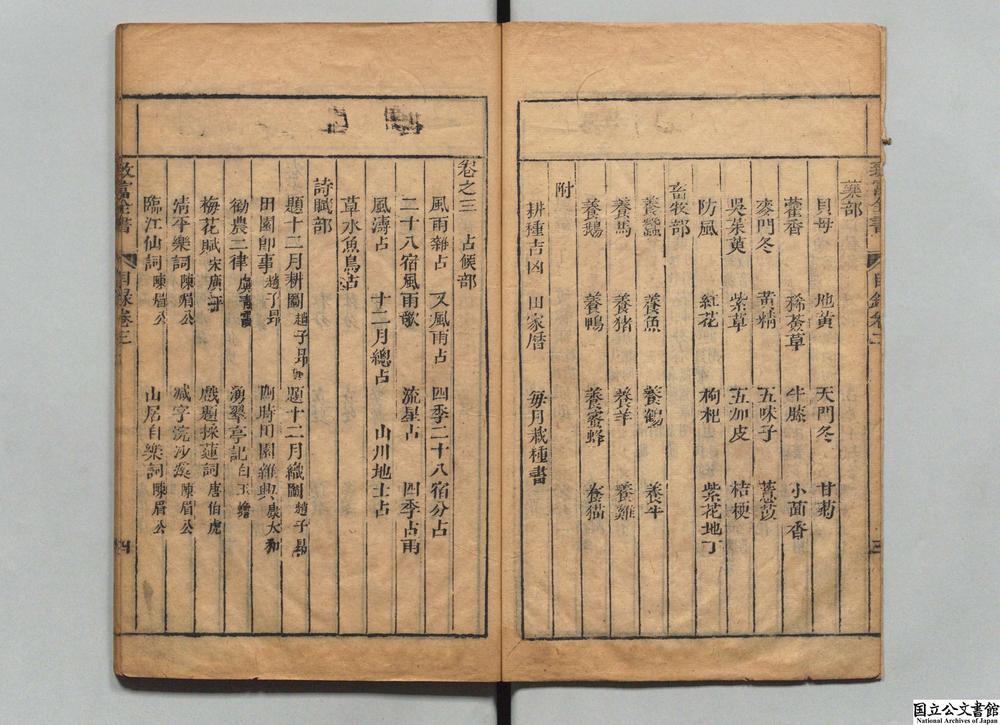 藥部
貝母 地黃 天門冬 甘菊
藿香 豨薟草 牛膝 小茴香
麥門冬 黃精 五味子 薏苡
吳茱萸 紫草 五加皮 桔梗
防風 紅花 枸杞 紫花地丁
畜牧部
養蠶 養魚 養鶴 養牛
養馬 養猪 養羊 養雞
養鵝 養鴨 養蜜蜂 養猫
附
耕種吉凶 田家厝 每月栽種書
卷之三 占候部
風雨雜占 又風雨占 四季二十八宿分占
二十八宿風雨歌 流星占 四季占雨
風濤占 十二月總占 山川地土占
草水魚鳥占
詩賦部
題十二月耕圖 趙子昂 題十二月織圖 趙子昂
田園即事 趙子昂 四時田園雜興 康大和
勸農二律 虞青霞 湧翠亭記 白玉蟾
梅花賦 宋廣平 戲題採蓮詞 唐伯虎
清平樂詞 陳眉公 減字浣沙溪 陳眉公
臨江仙詞 陳眉公 山居自樂詞 陳眉公
致富全書 目录卷三 四
国立公文書館
National Archives of Japan